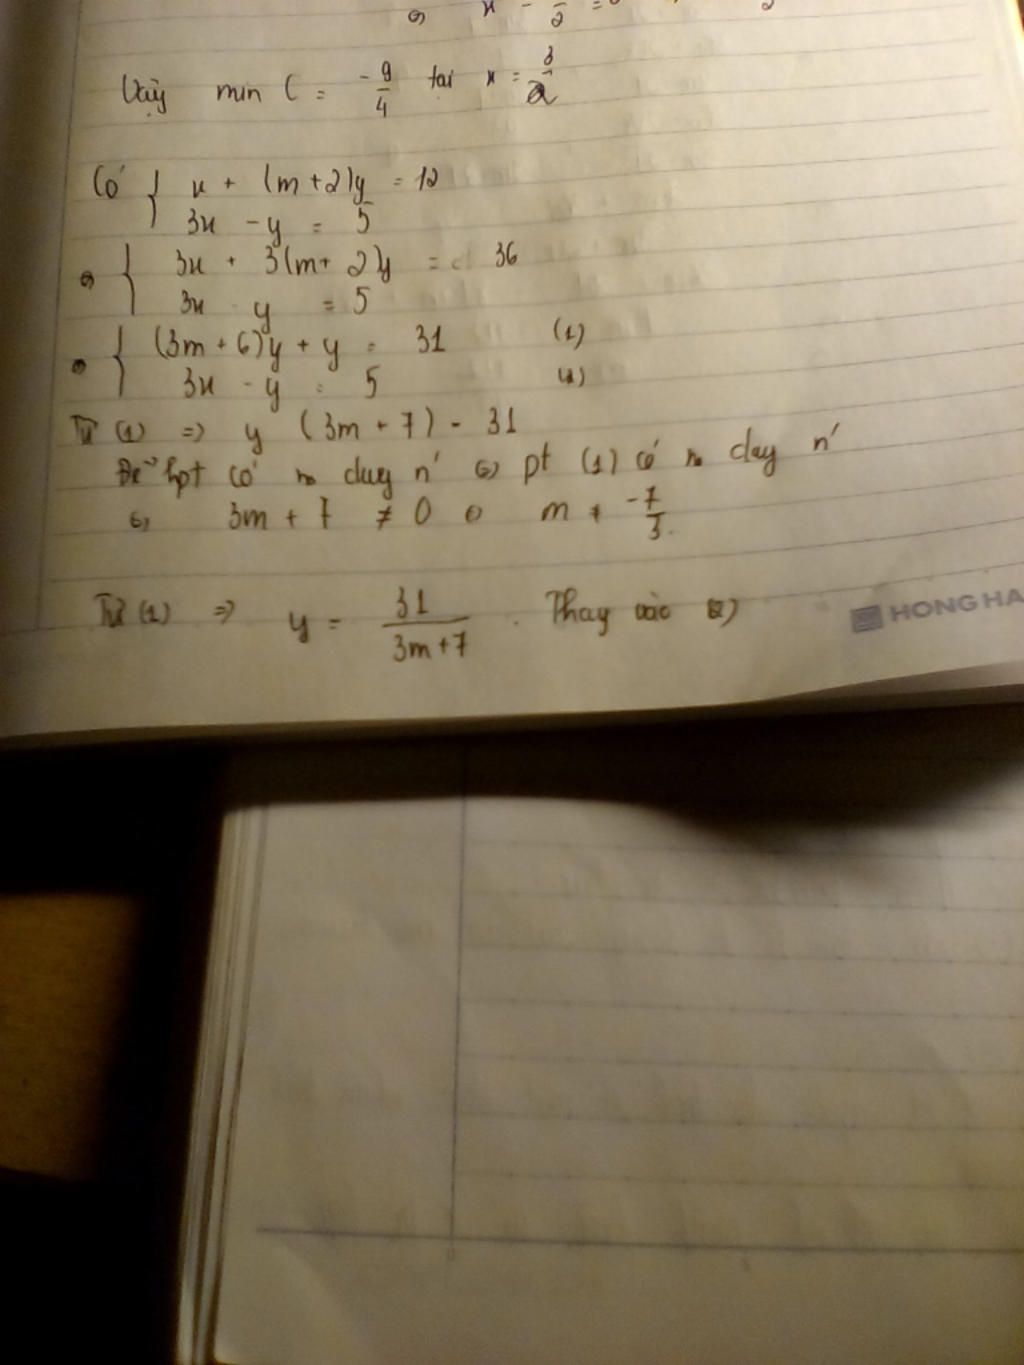 Vậy min C = -9/4 tại x = 3/2
Có { x + (m+2)y = 12
3x - y = 5
⇔ { 3x + 3(m+2)y = 36
3x - y = 5
⇔ { (3m+6)y + y = 31 (1)
3x - y = 5
Từ (1) => y (3m+7) = 31
Để hpt có no duy n' ⇔ pt (1) có no duy n'
⇔ 3m + 7 ≠ 0 ⇔ m ≠ -7/3.
Từ (1) => y = 31/(3m+7). Thay vào (2)
HONG HA